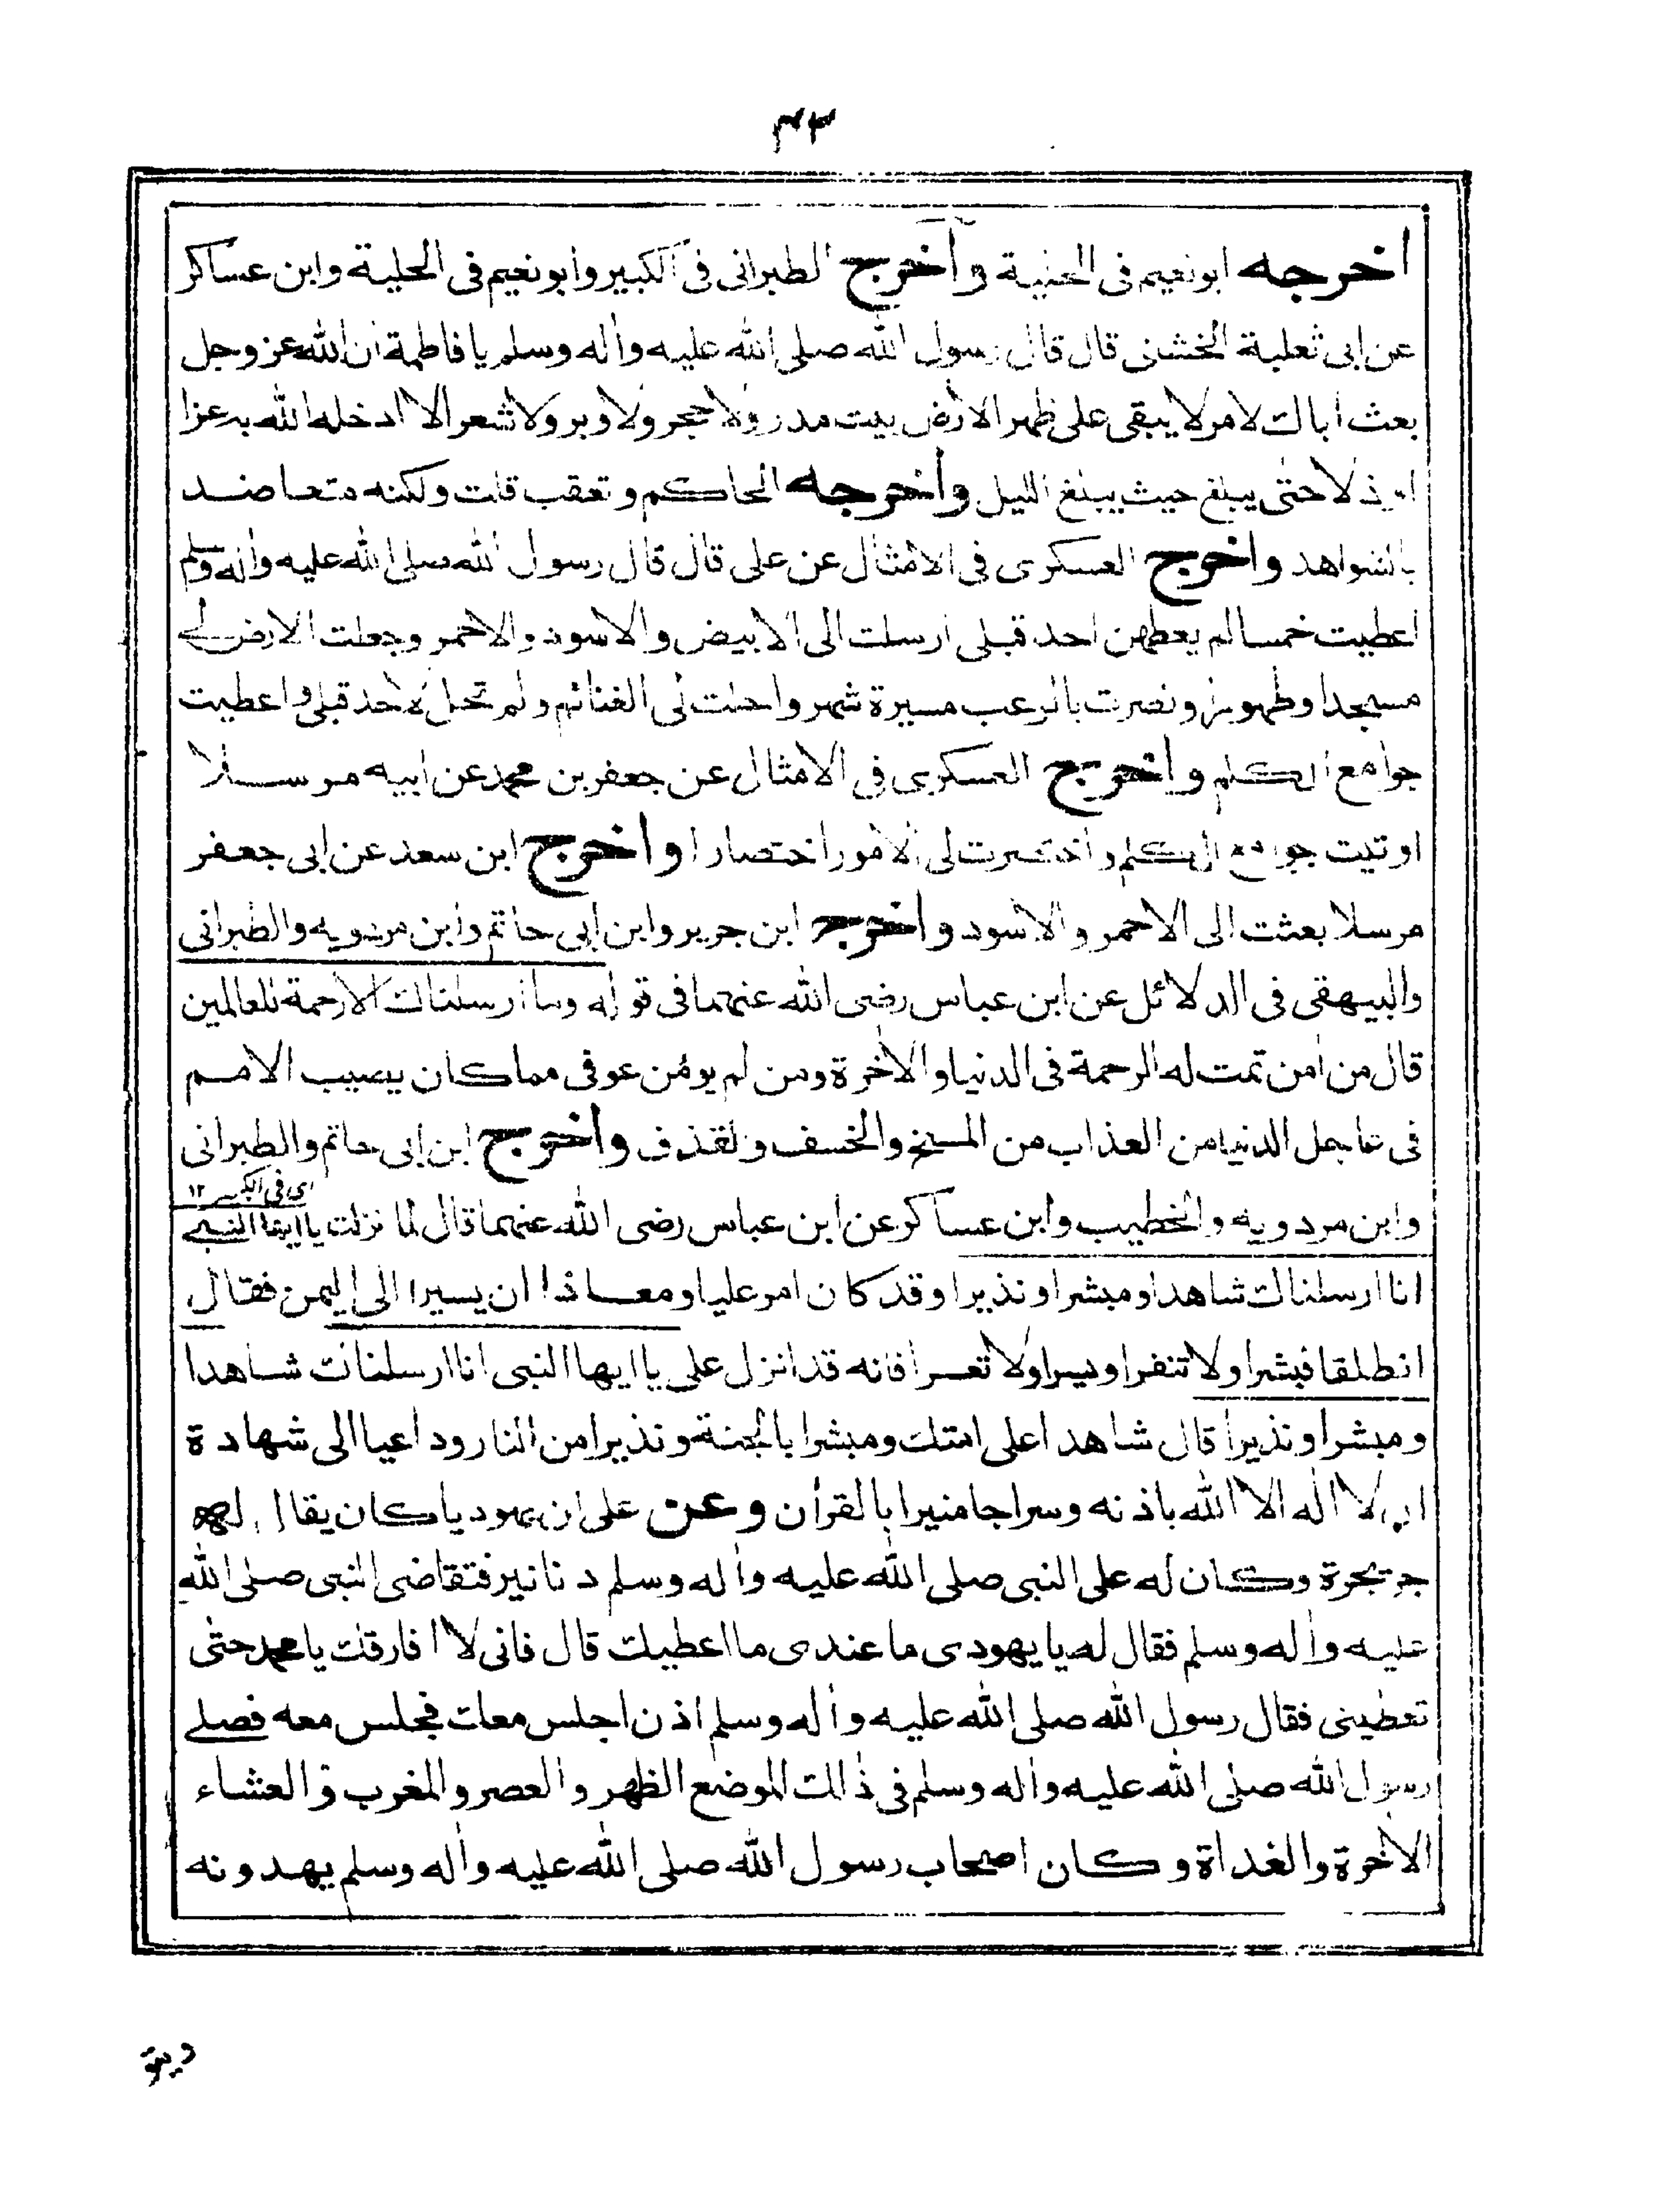 ٣٣
اخرجه ابو نعيم فى الحلية واخرج الطبرانى فى الكبير وابو نعيم فى الحلية وابن عساكر
عن ابى ثعلبة الخشنى قال قال رسول الله صلى الله عليه واله وسلم يا فاطمة ان الله عز وجل
بعث اباك لامر لا يبقى على ظهر الارض بيت مدر ولا حجر ولا وبر ولا شعر الا ادخله الله به عزا
او ذلا حتى يبلغ حيث يبلغ الليل واخرجه الحاكم وتعقب قلت ولكنه متعاضد
بالشواهد واخرج العسكرى فى الامثال عن على قال قال رسول الله صلى الله عليه واله وسلم
اعطيت خمسا لم يعطهن احد قبلى ارسلت الى الابيض والاسود والاحمر وجعلت الارض لى
مسجدا وطهورا ونصرت بالرعب مسيرة شهر واحلت لى الغنائم ولم تحل لاحد قبلى واعطيت
جوامع الكلم واخرج العسكرى فى الامثال عن جعفر بن محمد عن ابيه مرسلا
اوتيت جوامع الكلم واختصرت لى الامور اختصارا واخرج ابن سعد عن ابى جعفر
مرسلا بعثت الى الاحمر والاسود واخرج ابن جرير وابن ابى حاتم وابن مردويه والطبرانى
والبيهقى فى الدلائل عن ابن عباس رضى الله عنهما فى قوله وما ارسلناك الا رحمة للعالمين
قال من امن تمت له الرحمة فى الدنيا والاخرة ومن لم يومن عوفى مما كان يصيب الامم
فى عاجل الدنيا من العذاب من المسخ والخسف والقذف واخرج ابن ابى حاتم والطبرانى
اى فى الكبير ١٢
وابن مردويه والخطيب وابن عساكر عن ابن عباس رضى الله عنهما قال لما نزلت يا ايها النبى
انا ارسلناك شاهدا ومبشرا ونذيرا وقد كان امر عليا ومعاذا ان يسيرا الى اليمن فقال
انطلقا فبشرا ولا تنفرا ويسرا ولا تعسرا فانه قد انزل على يا ايها النبى انا ارسلناك شاهدا
ومبشرا ونذيرا قال شاهدا على امتك ومبشرا بالجنة ونذيرا من النار وداعيا الى شهادة
ان لا اله الا الله باذنه وسراجا منيرا بالقرأن وعن على ان يهوديا كان يقال له
جريجرة وكان له على النبى صلى الله عليه واله وسلم دنانير فتقاضى النبى صلى الله
عليه واله وسلم فقال له يا يهودى ما عندى ما اعطيك قال فانى لا افارقك يا محمد حتى
تعطينى فقال رسول الله صلى الله عليه واله وسلم اذن اجلس معك فجلس معه فصلى
رسول الله صلى الله عليه واله وسلم فى ذلك الموضع الظهر والعصر والمغرب والعشاء
الاخرة والغداة وكان اصحاب رسول الله صلى الله عليه واله وسلم يهددونه